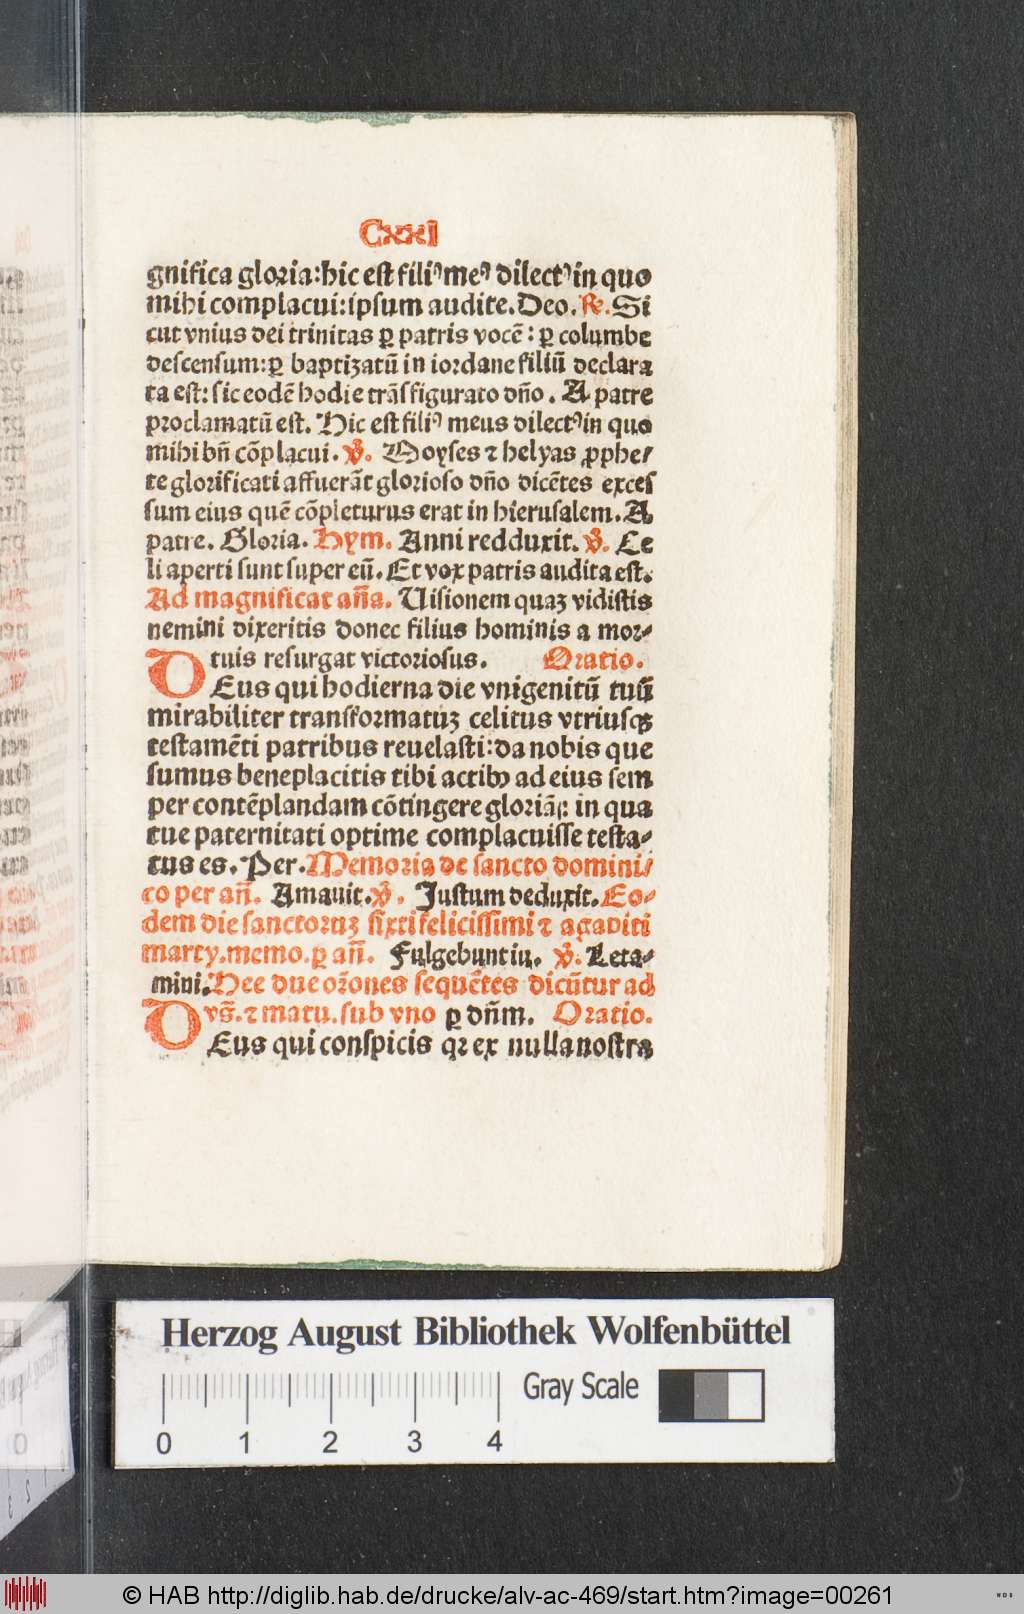 Cxxi
gnifica gloria:hic est filiꝰ meꝰ dilectꝰ in quo
mihi complacui:ipsum audite.Deo.℟.Si
cut vnius dei trinitas ꝑ patris vocē:ꝑ columbe
descensum:ꝑ baptizatū in iordane filiū declara
ta est:sic eodē hodie trāsfigurato dn̄o. A patre
proclamatū est. Hic est filiꝰ meus dilectꝰ in quo
mihi bn̄ cōplacui.℣. Moyses ⁊ helyas ꝓphe⸗
te glorificati affuerāt glorioso dn̄o dicētes exces
sum eius quē cōpleturus erat in hierusalem.A
patre. Gloria. Hym. Anni redduxit.℣. Ce
li aperti sunt super eū. Et vox patris audita est.
Ad magnificat an̄a. Uisionem quaꝫ vidistis
nemini dixeritis donec filius hominis a mor⸗
tuis resurgat victoriosus. Oratio.
DEus qui hodierna die vnigenitū tuū
mirabiliter transformatuꝫ celitus vtriusqꝫ
testamēti patribus reuelasti:da nobis que
sumus beneplacitis tibi actibꝰ ad eius sem
per contēplandam cōtingere gloriā: in qua
tue paternitati optime complacuisse testa⸗
tus es. Per. Memoria de sancto domini⸗
co per an̄. Amauit.℣. Justum deduxit. Eo⸗
dem die sanctoruꝫ sixti felicissimi ⁊ agapiti
marty.memo.ꝑ an̄. Fulgebunt iu. ℣. Leta⸗
mini. Hee due or̄ones sequētes dicūtur ad
vs̄.⁊ matu.sub vno ꝑ dn̄m. Oratio.
DEus qui conspicis qꝛ ex nulla nostra
Herzog August Bibliothek Wolfenbüttel
Gray Scale
0 1 2 3 4
© HAB http://diglib.hab.de/drucke/alv-ac-469/start.htm?image=00261